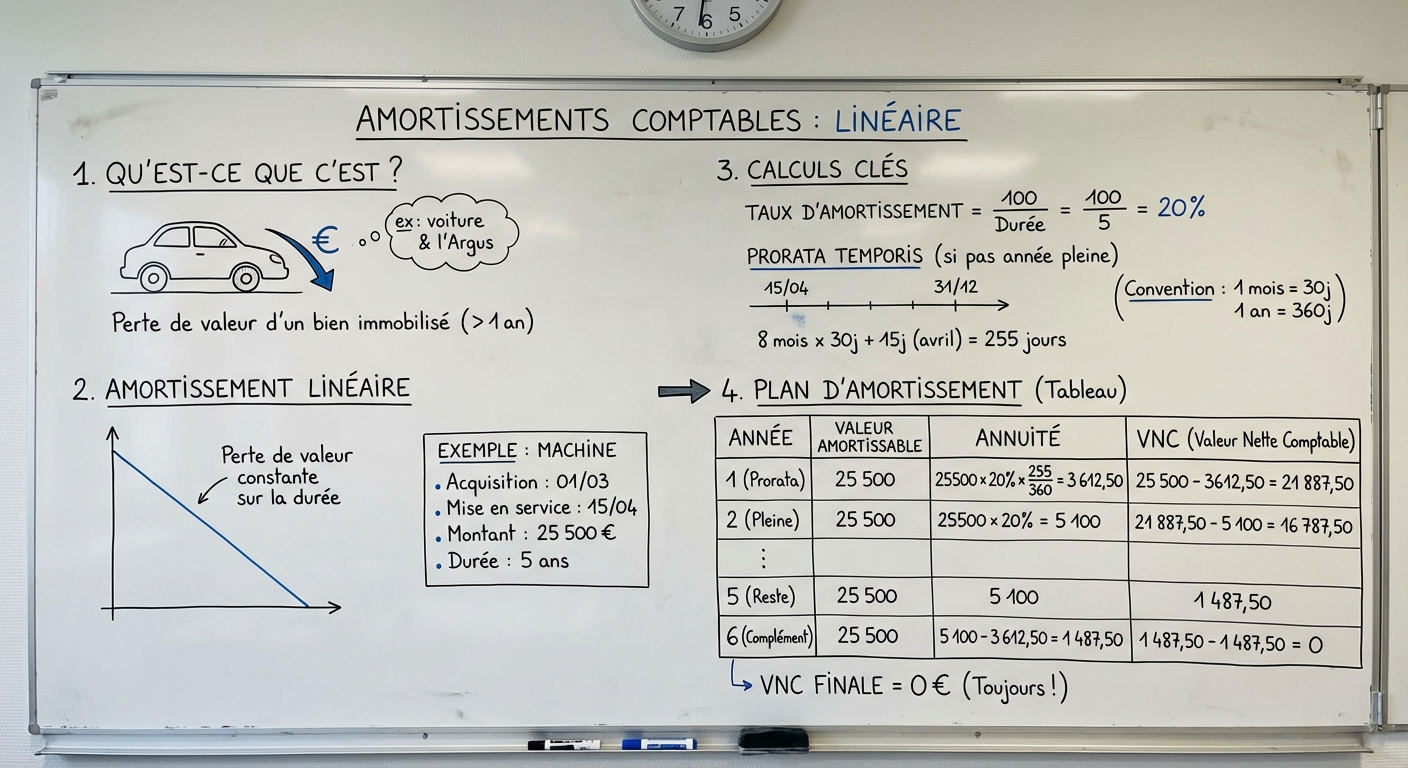 7 6 5
AMORTISSEMENTS COMPTABLES : LINÉAIRE
1. QU'EST-CE QUE C'EST ?
€
ex : voiture
& l'Argus
Perte de valeur d'un bien immobilisé (> 1 an)
2. AMORTISSEMENT LINÉAIRE
Perte de valeur
constante
sur la durée
EXEMPLE : MACHINE
• Acquisition : 01/03
• Mise en service : 15/04
• Montant : 25 500 €
• Durée : 5 ans
3. CALCULS CLÉS
TAUX D'AMORTISSEMENT = 100/Durée = 100/5 = 20%
PRORATA TEMPORIS (si pas année pleine)
15/04 31/12
(Convention : 1 mois = 30j
1 an = 360j)
8 mois x 30j + 15j (avril) = 255 jours
4. PLAN D'AMORTISSEMENT (Tableau)
ANNÉE | VALEUR AMORTISSABLE | ANNUITÉ | VNC (Valeur Nette Comptable)
1 (Prorata) | 25 500 | 25500 x 20% x 255/360 = 3 612,50 | 25 500 - 3612,50 = 21 887,50
2 (Pleine) | 25 500 | 25500 x 20% = 5 100 | 21 887,50 - 5 100 = 16 787,50
⋮
5 (Reste) | 25 500 | 5 100 | 1 487,50
6 (Complément) | 25 500 | 5 100 - 3 612,50 = 1 487,50 | 1 487,50 - 1 487,50 = 0
VNC FINALE = 0 € (Toujours !)